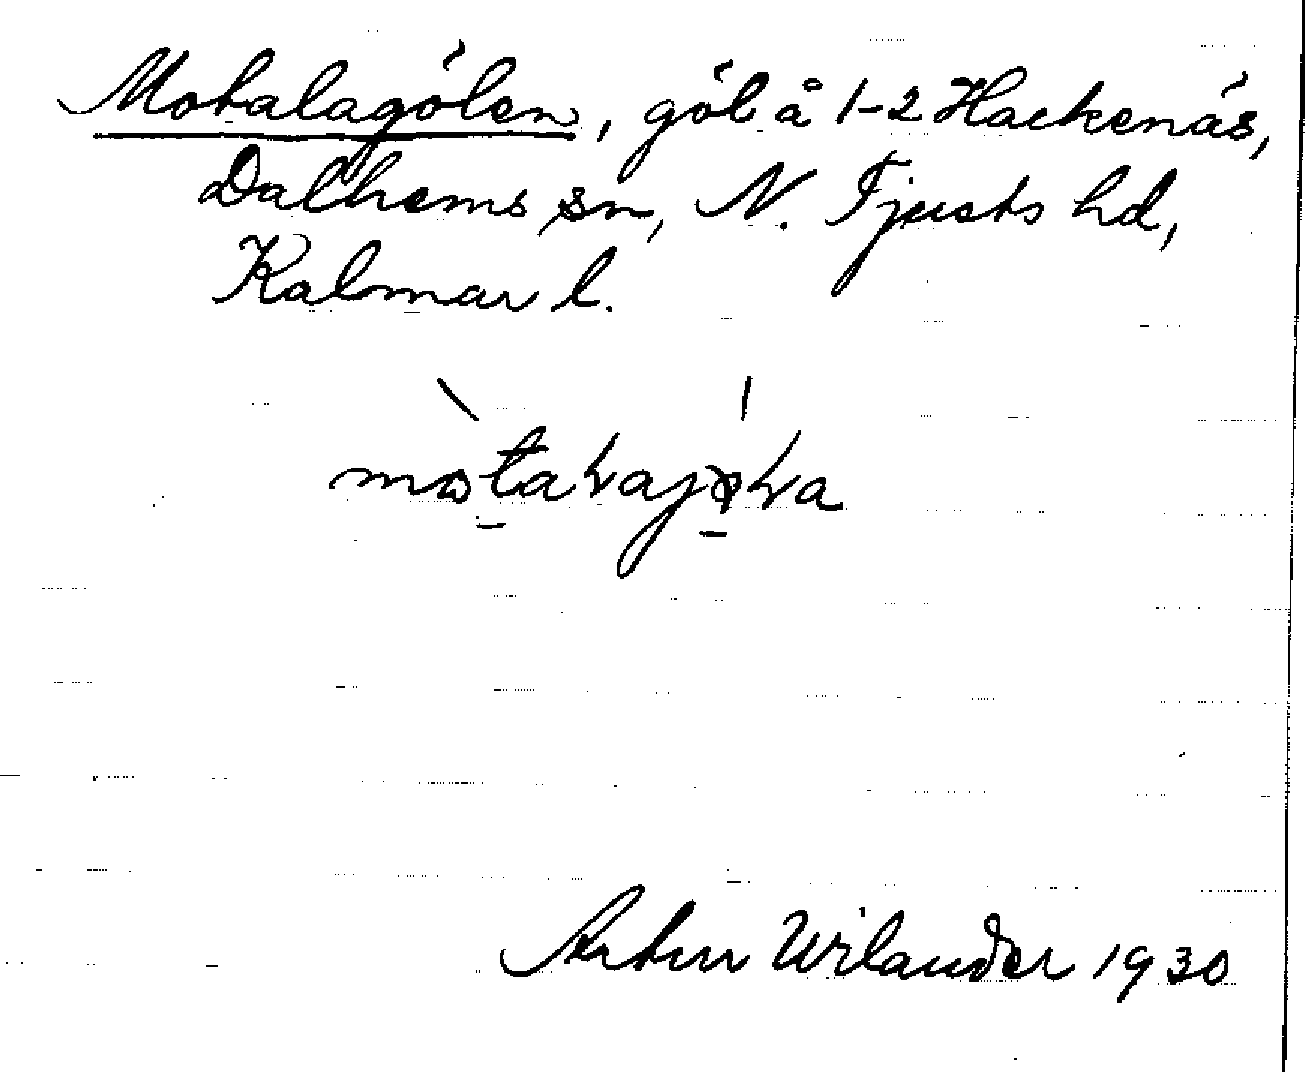 Motalagölen, göl å 1-2 Hackenäs,
Dalhems sn, N. Tjusts hd,
Kalmar l.
Artur Wilander 1930